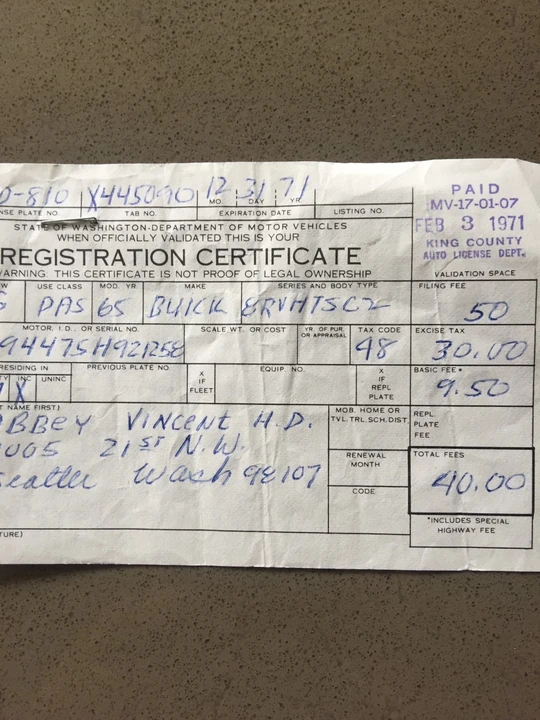 D-810 X445090 12 31 71
NSE PLATE NO. TAB NO. MO. DAY YR. EXPIRATION DATE LISTING NO.
PAID
MV-17-01-07
FEB 3 1971
KING COUNTY
AUTO LICENSE DEPT.
VALIDATION SPACE
STATE OF WASHINGTON-DEPARTMENT OF MOTOR VEHICLES
WHEN OFFICIALLY VALIDATED THIS IS YOUR
REGISTRATION CERTIFICATE
WARNING. THIS CERTIFICATE IS NOT PROOF OF LEGAL OWNERSHIP
W USE CLASS MOD. YR MAKE SERIES AND BODY TYPE FILING FEE
PAS 65 BUICK 50
MOTOR, I.D., OR SERIAL NO. SCALE WT. OR COST YR. OF PUR. OR APPRAISAL TAX CODE EXCISE TAX
94475H921258 98 30.00
RESIDING IN PREVIOUS PLATE NO. X IF FLEET EQUIP. NO. X IF REPL PLATE BASIC FEE*
TY INC UNINC X 9.50
T NAME FIRST) MOB. HOME OR TVL. TRL. SCH. DIST. REPL PLATE FEE
BBEY VINCENT H.D.
005 21ST N.W.
Seattle Wash 98107
RENEWAL MONTH TOTAL FEES
CODE 40.00
TURE) *INCLUDES SPECIAL HIGHWAY FEE